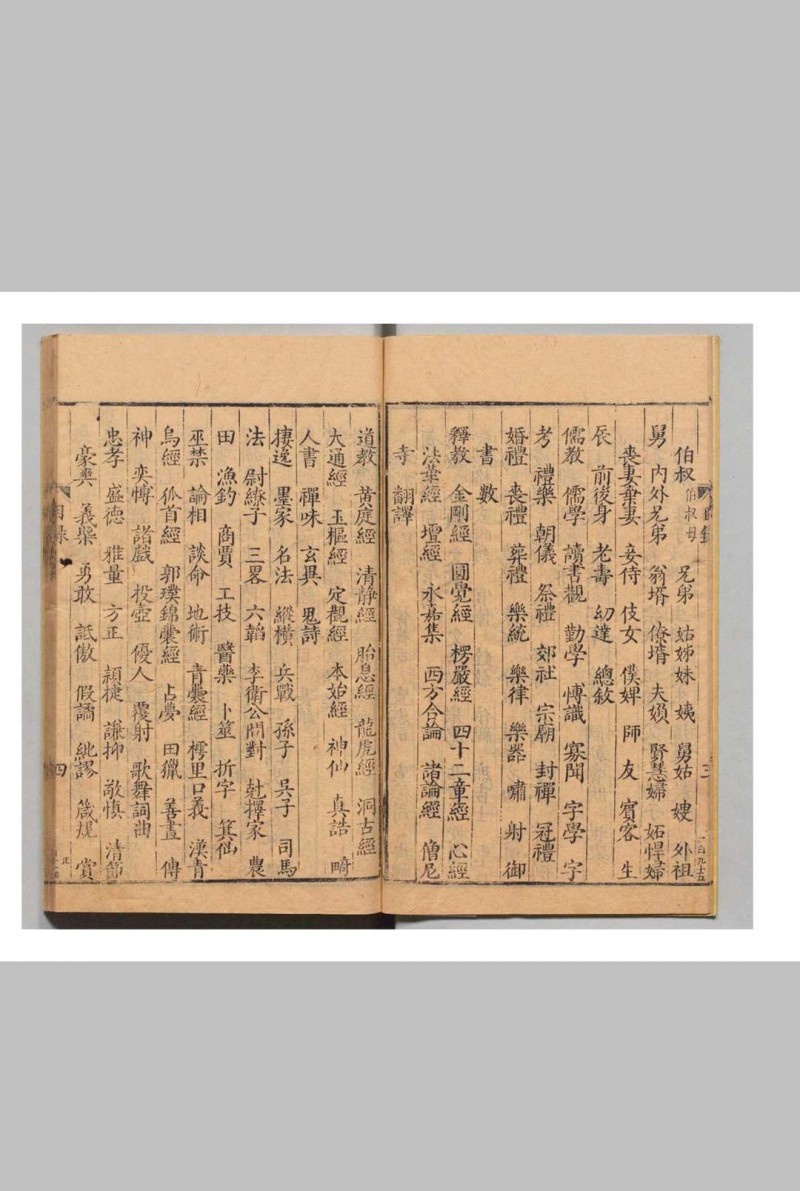 伯叔 伯叔母 兄弟 姑姊妹 姨 舅姑 嫂 外祖
舅 內外兄弟 翁壻 僚壻 夫婦 賢慧婦 妬悍婦
喪妻棄妻 妾侍 伎女 僕婢 師 友 賓客 生
辰 前後身 老壽 幼達 總敘
儒教 儒學 讀書觀 勤學 博識 寡聞 字學 字
考 禮樂 朝儀 祭禮 郊社 宗廟 封禪 冠禮
婚禮 喪禮 葬禮 樂統 樂律 樂器 嘯 射 御
書 數
釋教 金剛經 圓覺經 楞嚴經 四十二章經 心經
法華經 壇經 永嘉集 西方合論 諸論經 僧尼
寺 翻譯
目錄 三
道教 黃庭經 清靜經 胎息經 龍虎經 洞古經
大通經 玉樞經 定觀經 本始經 神仙 真誥 畸
人書 禪味 玄異 鬼詩
捿逸 墨家 名法 縱橫 兵戰 孫子 吳子 司馬
法 尉繚子 三畧 六韜 李衛公問對 尅擇家 農
田 漁釣 商賈 工技 醫藥 卜筮 折字 箕仙
巫禁 論相 談命 地術 青囊經 樗里口義 漢青
烏經 狐首經 郭璞錦囊經 占夢 田獵 善畫 傳
神 奕愽 諸戲 投壺 優人 覆射 歌舞詞曲
忠孝 盛德 雅量 方正 穎捷 謙抑 敬慎 清節
豪爽 義槩 勇敢 詆傲 假譎 紕謬 箴規 賞
目錄 四